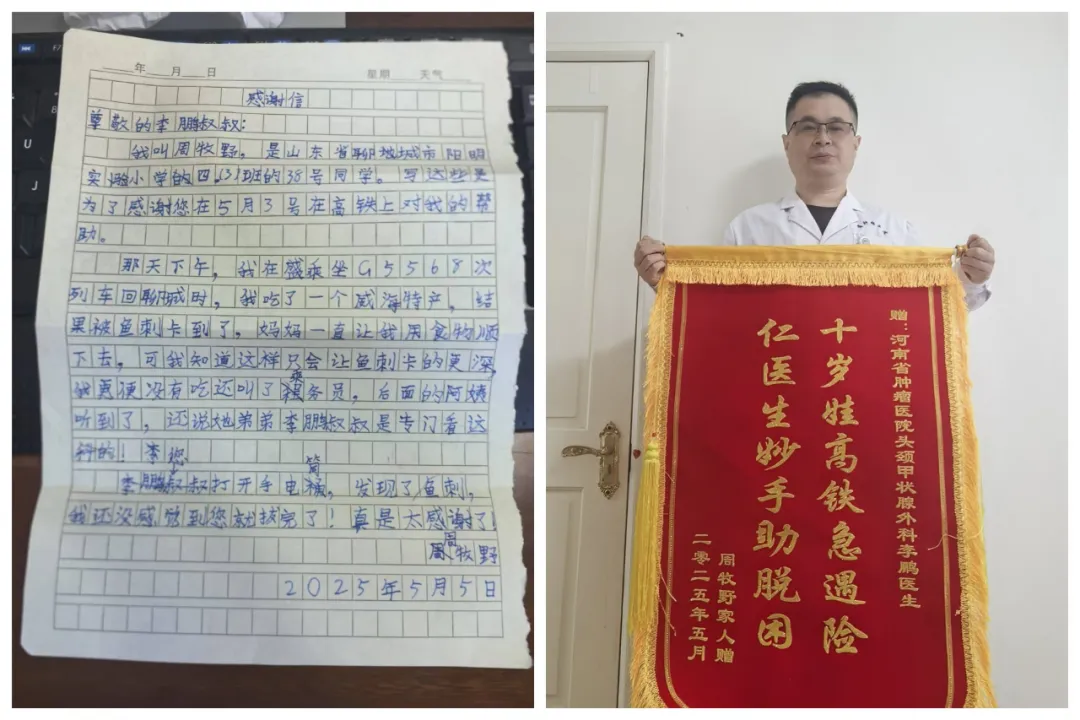 年 月 日 星期 天气
感谢信
尊敬的李鹏叔叔：
我叫周牧野，是山东省聊城市阳明
实验小学的四.(3)班的38号同学。写这些是
为了感谢您在5月3号在高铁上对我的帮
助。
那天下午，我在乘坐G5568次
列车回聊城时，我吃了一个威海特产，结
果被鱼刺卡到了。妈妈一直让我用食物顺
下去，可我知道这样只会让鱼刺卡的更深，
我便没有吃还叫了乘务员，后面的阿姨
听到了，还说她弟弟李鹏叔叔是专门看这
科的！
李鹏叔叔打开手电筒，发现了鱼刺，
我还没感觉到您就拔完了！真是太感谢了！
周牧野
2025年5月5日
赠：河南省肿瘤医院头颈甲状腺外科李鹏医生
十岁娃高铁急遇险
仁医生妙手助脱困
周牧野家人赠
二零二五年五月
F7
U
J